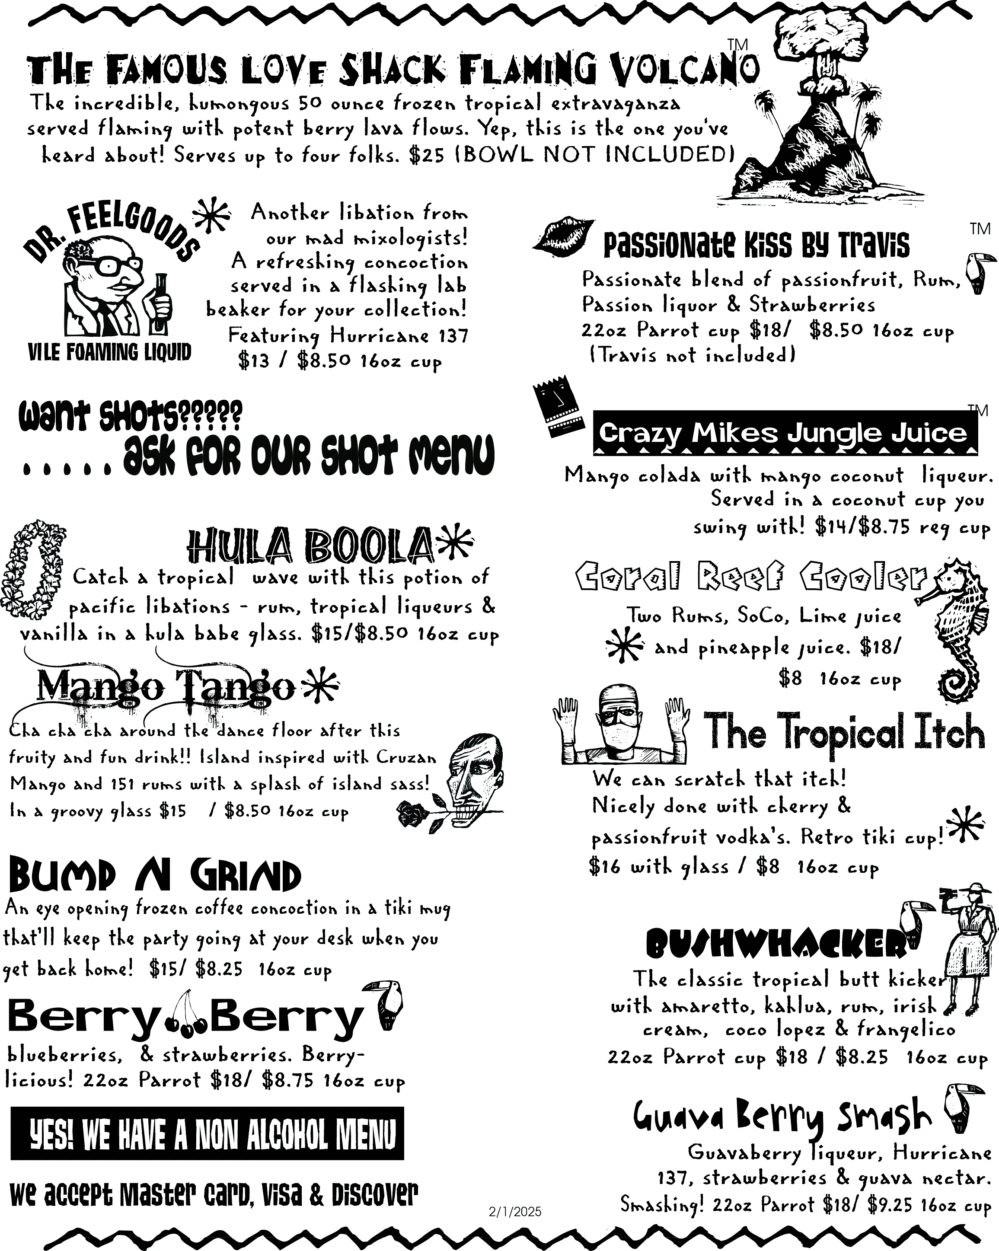 THE FAMOUS LOVE SHACK FLAMING VOLCANO TM
The incredible, humongous 50 ounce frozen tropical extravaganza
served flaming with potent berry lava flows. Yep, this is the one you've
heard about! Serves up to four folks. $25 (BOWL NOT INCLUDED)
DR. FEELGOODS
VILE FOAMING LIQUID
Another libation from
our mad mixologists!
A refreshing concoction
served in a flashing lab
beaker for your collection!
Featuring Hurricane 137
$13 / $8.50 16oz cup
Want SHOTS?????
. . . . . ask FOR OUR SHOT MENU
HULA BOOLA
Catch a tropical wave with this potion of
pacific libations - rum, tropical liqueurs &
vanilla in a hula babe glass. $15/$8.50 16oz cup
Mango Tango
Cha cha cha around the dance floor after this
fruity and fun drink!! Island inspired with Cruzan
Mango and 151 rums with a splash of island sass!
In a groovy glass $15 / $8.50 16oz cup
BUMP N GRIND
An eye opening frozen coffee concoction in a tiki mug
that'll keep the party going at your desk when you
get back home! $15/ $8.25 16oz cup
Berry Berry
blueberries, & strawberries. Berry-
licious! 22oz Parrot $18/ $8.75 16oz cup
YES! WE HAVE A NON ALCOHOL MENU
We accept Master Card, Visa & Discover
TM
Passionate Kiss By Travis
Passionate blend of passionfruit, Rum,
Passion liquor & Strawberries
22oz Parrot cup $18/ $8.50 16oz cup
(Travis not included)
TM
Crazy Mikes Jungle Juice
Mango colada with mango coconut liqueur.
Served in a coconut cup you
swing with! $14/$8.75 reg cup
Coral Reef Cooler
Two Rums, SoCo, Lime juice
and pineapple juice. $18/
$8 16oz cup
The Tropical Itch
We can scratch that itch!
Nicely done with cherry &
passionfruit vodka's. Retro tiki cup!
$16 with glass / $8 16oz cup
BUSHWHACKER
The classic tropical butt kicker
with amaretto, kahlua, rum, irish
cream, coco lopez & frangelico
22oz Parrot cup $18 / $8.25 16oz cup
Guava Berry Smash
Guavaberry liqueur, Hurricane
137, strawberries & guava nectar.
Smashing! 22oz Parrot $18/ $9.25 16oz cup
2/1/2025